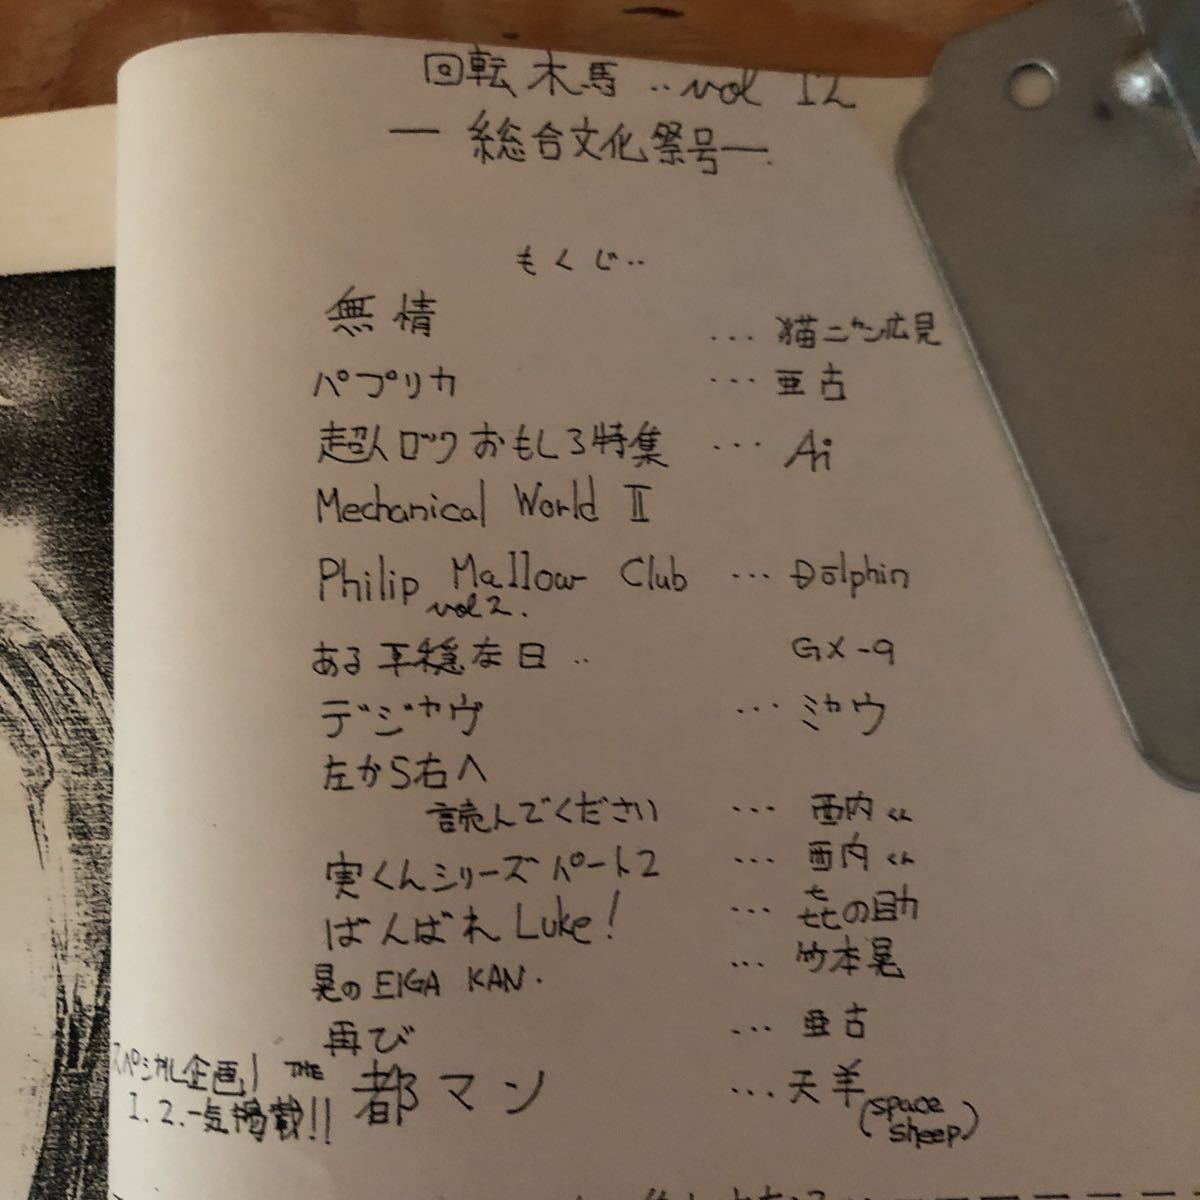 回転木馬..vol 12
— 総合文化祭号 —
もくじ..
無情 ... 猫ニャン広見
パプリカ ... 亜古
超人ロックおもしろ特集 ... Ai
Mechanical World II
Philip Mallow Club ... Dolphin
vol 2.
ある平穏な日 .. GX-9
デジャヴ ... ミカウ
左から右へ
読んでください ... 西内くん
実くんシリーズパート2 ... 西内くん
ばんばれ Luke! ... 七七七の助
晃の EIGA KAN. ... 竹本晃
再び ... 亜古
スペシャル企画! THE 都マン ... 天羊
1.2.一気掲載!! (space sheep)